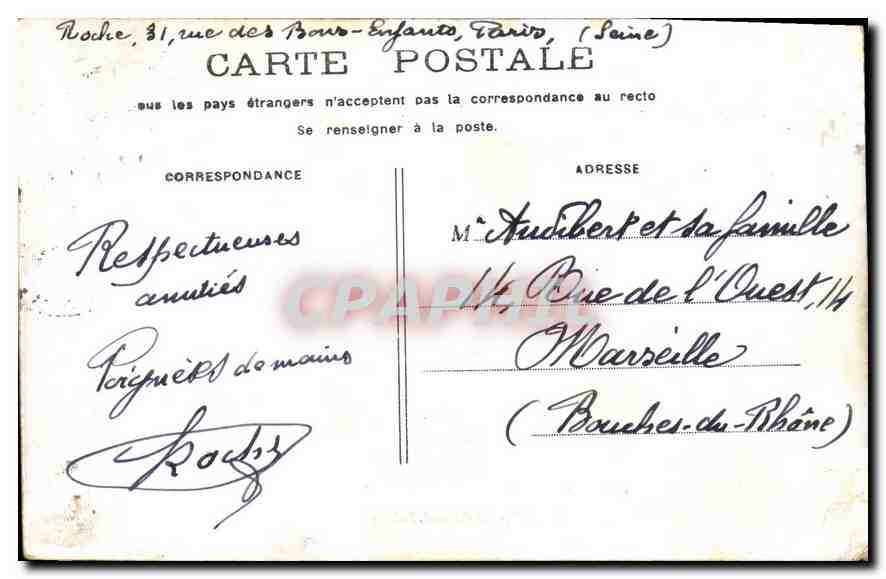 Roche, 31, rue des Bons-Enfants, Paris, (Seine)
CARTE POSTALE
ous les pays étrangers n'acceptent pas la correspondance au recto
Se renseigner à la poste.
CORRESPONDANCE
Respectueuses
amitiés
Poignées de mains
Roche
ADRESSE
Mr Audibert et sa famille
14, Rue de l'Ouest, 14
Marseille
(Bouches-du-Rhône)
CPAPHIL